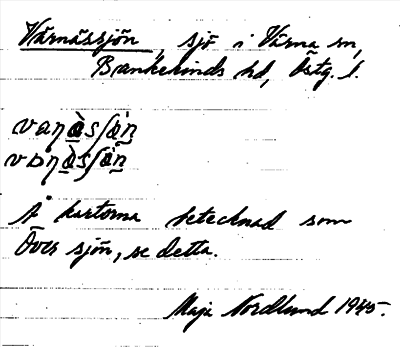 Värnässjön, sjö i Värna sn,
Bankekinds hd, Östg. l.
På kartorna betecknad som
Över sjön, se detta.
Maja Nordlund 1945.